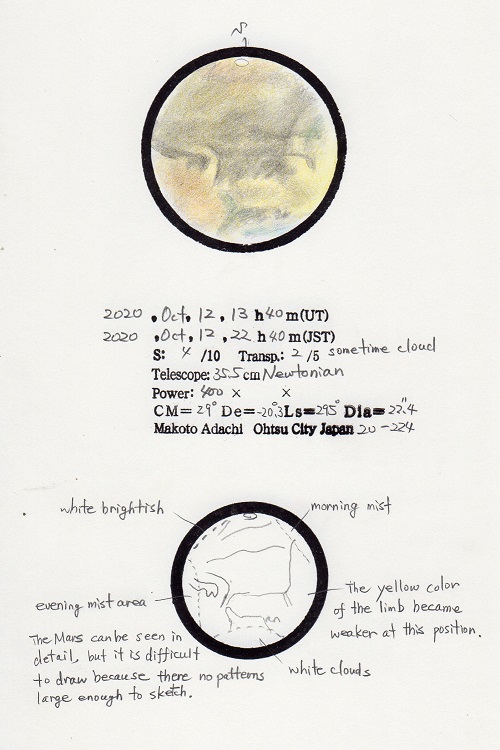 2020 , Oct, 12, 13 h 40 m(UT)
2020 , Oct, 12, 22 h 40 m(JST)
S: 4 /10 Transp.: 2 /5 sometime cloud
Telescope: 35.5 cm Newtonian
Power: 400 × ×
CM= 29° De= -20.°3 Ls= 295° Dia= 22.″4
Makoto Adachi Ohtsu City Japan 20-224
white brightish
morning mist
evening mist area
The yellow color
of the limb became
weaker at this position.
The Mars can be seen in
detail, but it is difficult
to draw because there no patterns
large enough to sketch.
white clouds